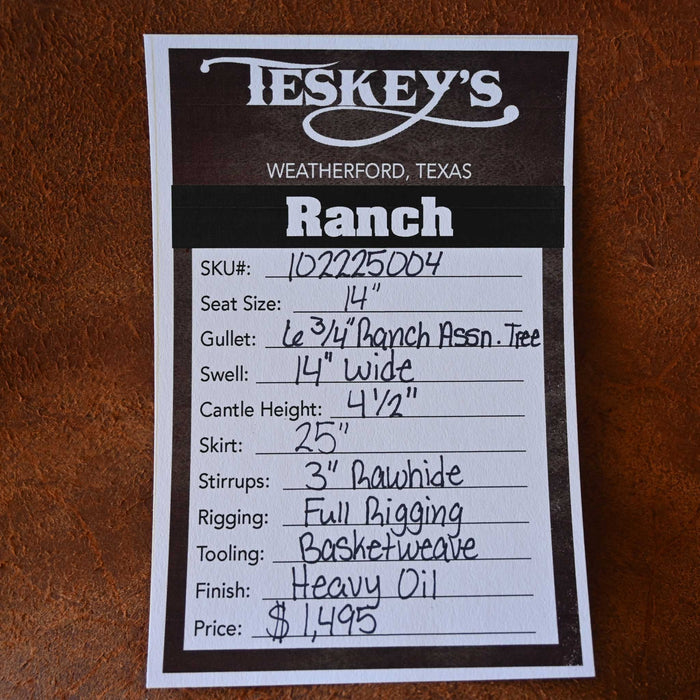 TESKEY'S
WEATHERFORD, TEXAS
Ranch
SKU#: 102225004
Seat Size: 14"
Gullet: 6 3/4" Ranch Assn. Tree
Swell: 14" wide
Cantle Height: 4 1/2"
Skirt: 25"
Stirrups: 3" Rawhide
Rigging: Full Rigging
Tooling: Basketweave
Finish: Heavy Oil
Price: $ 1,495